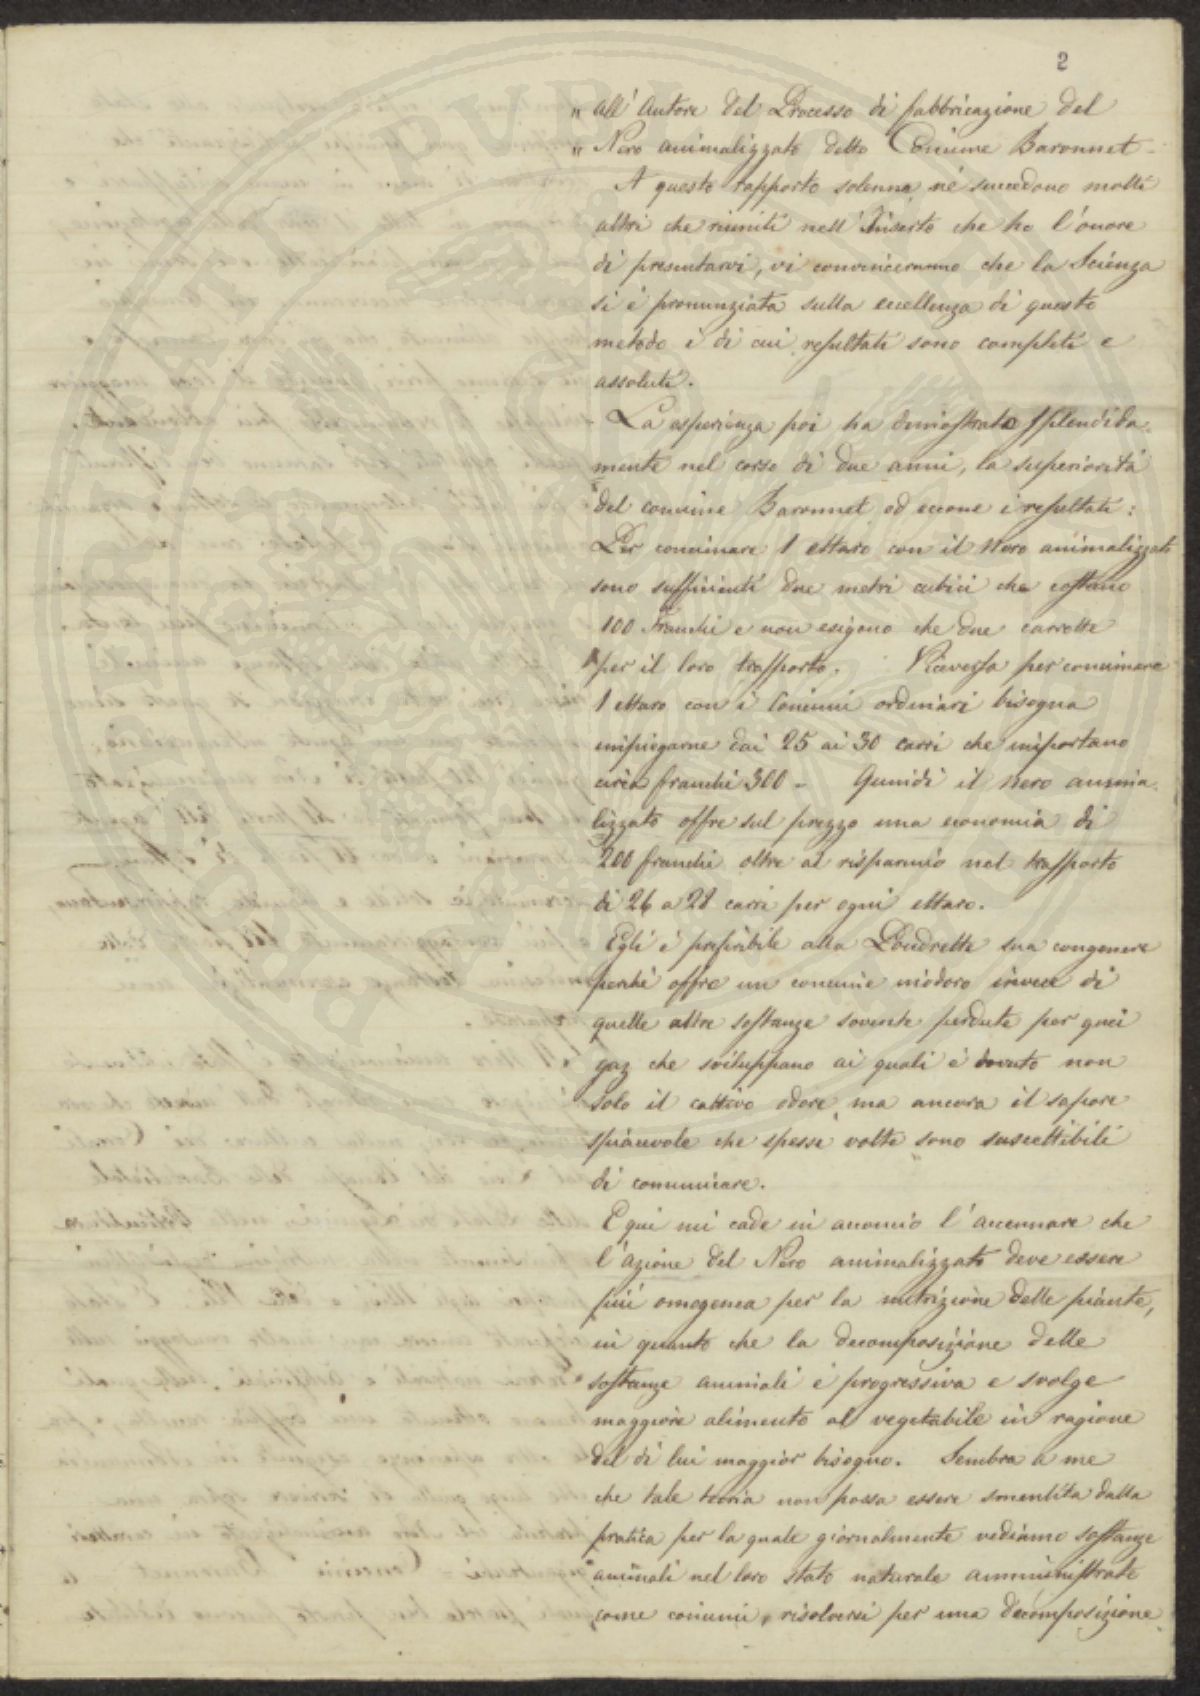 2
" all' Autore del Processo di fabbricazione del
" Nero animalizzato detto Concime Baronnet -
A questo rapporto solenne, né succedono molti
altri che riuniti nell' Inserto che ho l'onore
di presentarvi, vi convinceranno che la Scienza
si è pronunziata sulla eccellenza di questo
metodo i di cui resultati sono completi e
assoluti.
La esperienza poi ha dimostrato splendida-
mente nel corso di due anni, la superiorità
del concime Baronnet, ed eccone i resultati:
Per concimare 1 ettaro con il Nero animalizzato
sono sufficienti due metri cubici che costano
100 Franchi e non esigono che due carrette
per il loro trasporto. Viceversa per concimare
1 ettaro con i Concimi ordinari bisogna
impiegarne dai 25 ai 30 carri che importano
circa franchi 300 - Quindi il nero anima-
lizzato offre sul prezzo una economia di
200 franchi oltre al risparmio nel trasporto
di 26 a 28 carri per ogni ettaro.
Egli è preferibile alla Poudrette sua congenere
perché offre un concime inodoro invece di
quelle altre sostanze sovente perdute per quei
gaz che sviluppano ai quali è dovuto non
solo il cattivo odore, ma ancora il sapore
spiacevole che spesse volte sono suscettibili
di comunicare.
E qui mi cade in acconcio l'accennare che
l'azione del Nero animalizzato deve essere
più omogenea per la nutrizione delle piante,
in quanto che la decomposizione delle
sostanze animali è progressiva e svolge
maggiore alimento al vegetabile in ragione
del di lui maggior bisogno. Sembra a me
che tale teoria non possa essere smentita dalla
pratica per la quale giornalmente vediamo sostanze
animali nel loro stato naturale amministrate
come concimi, risolversi per una decomposizione